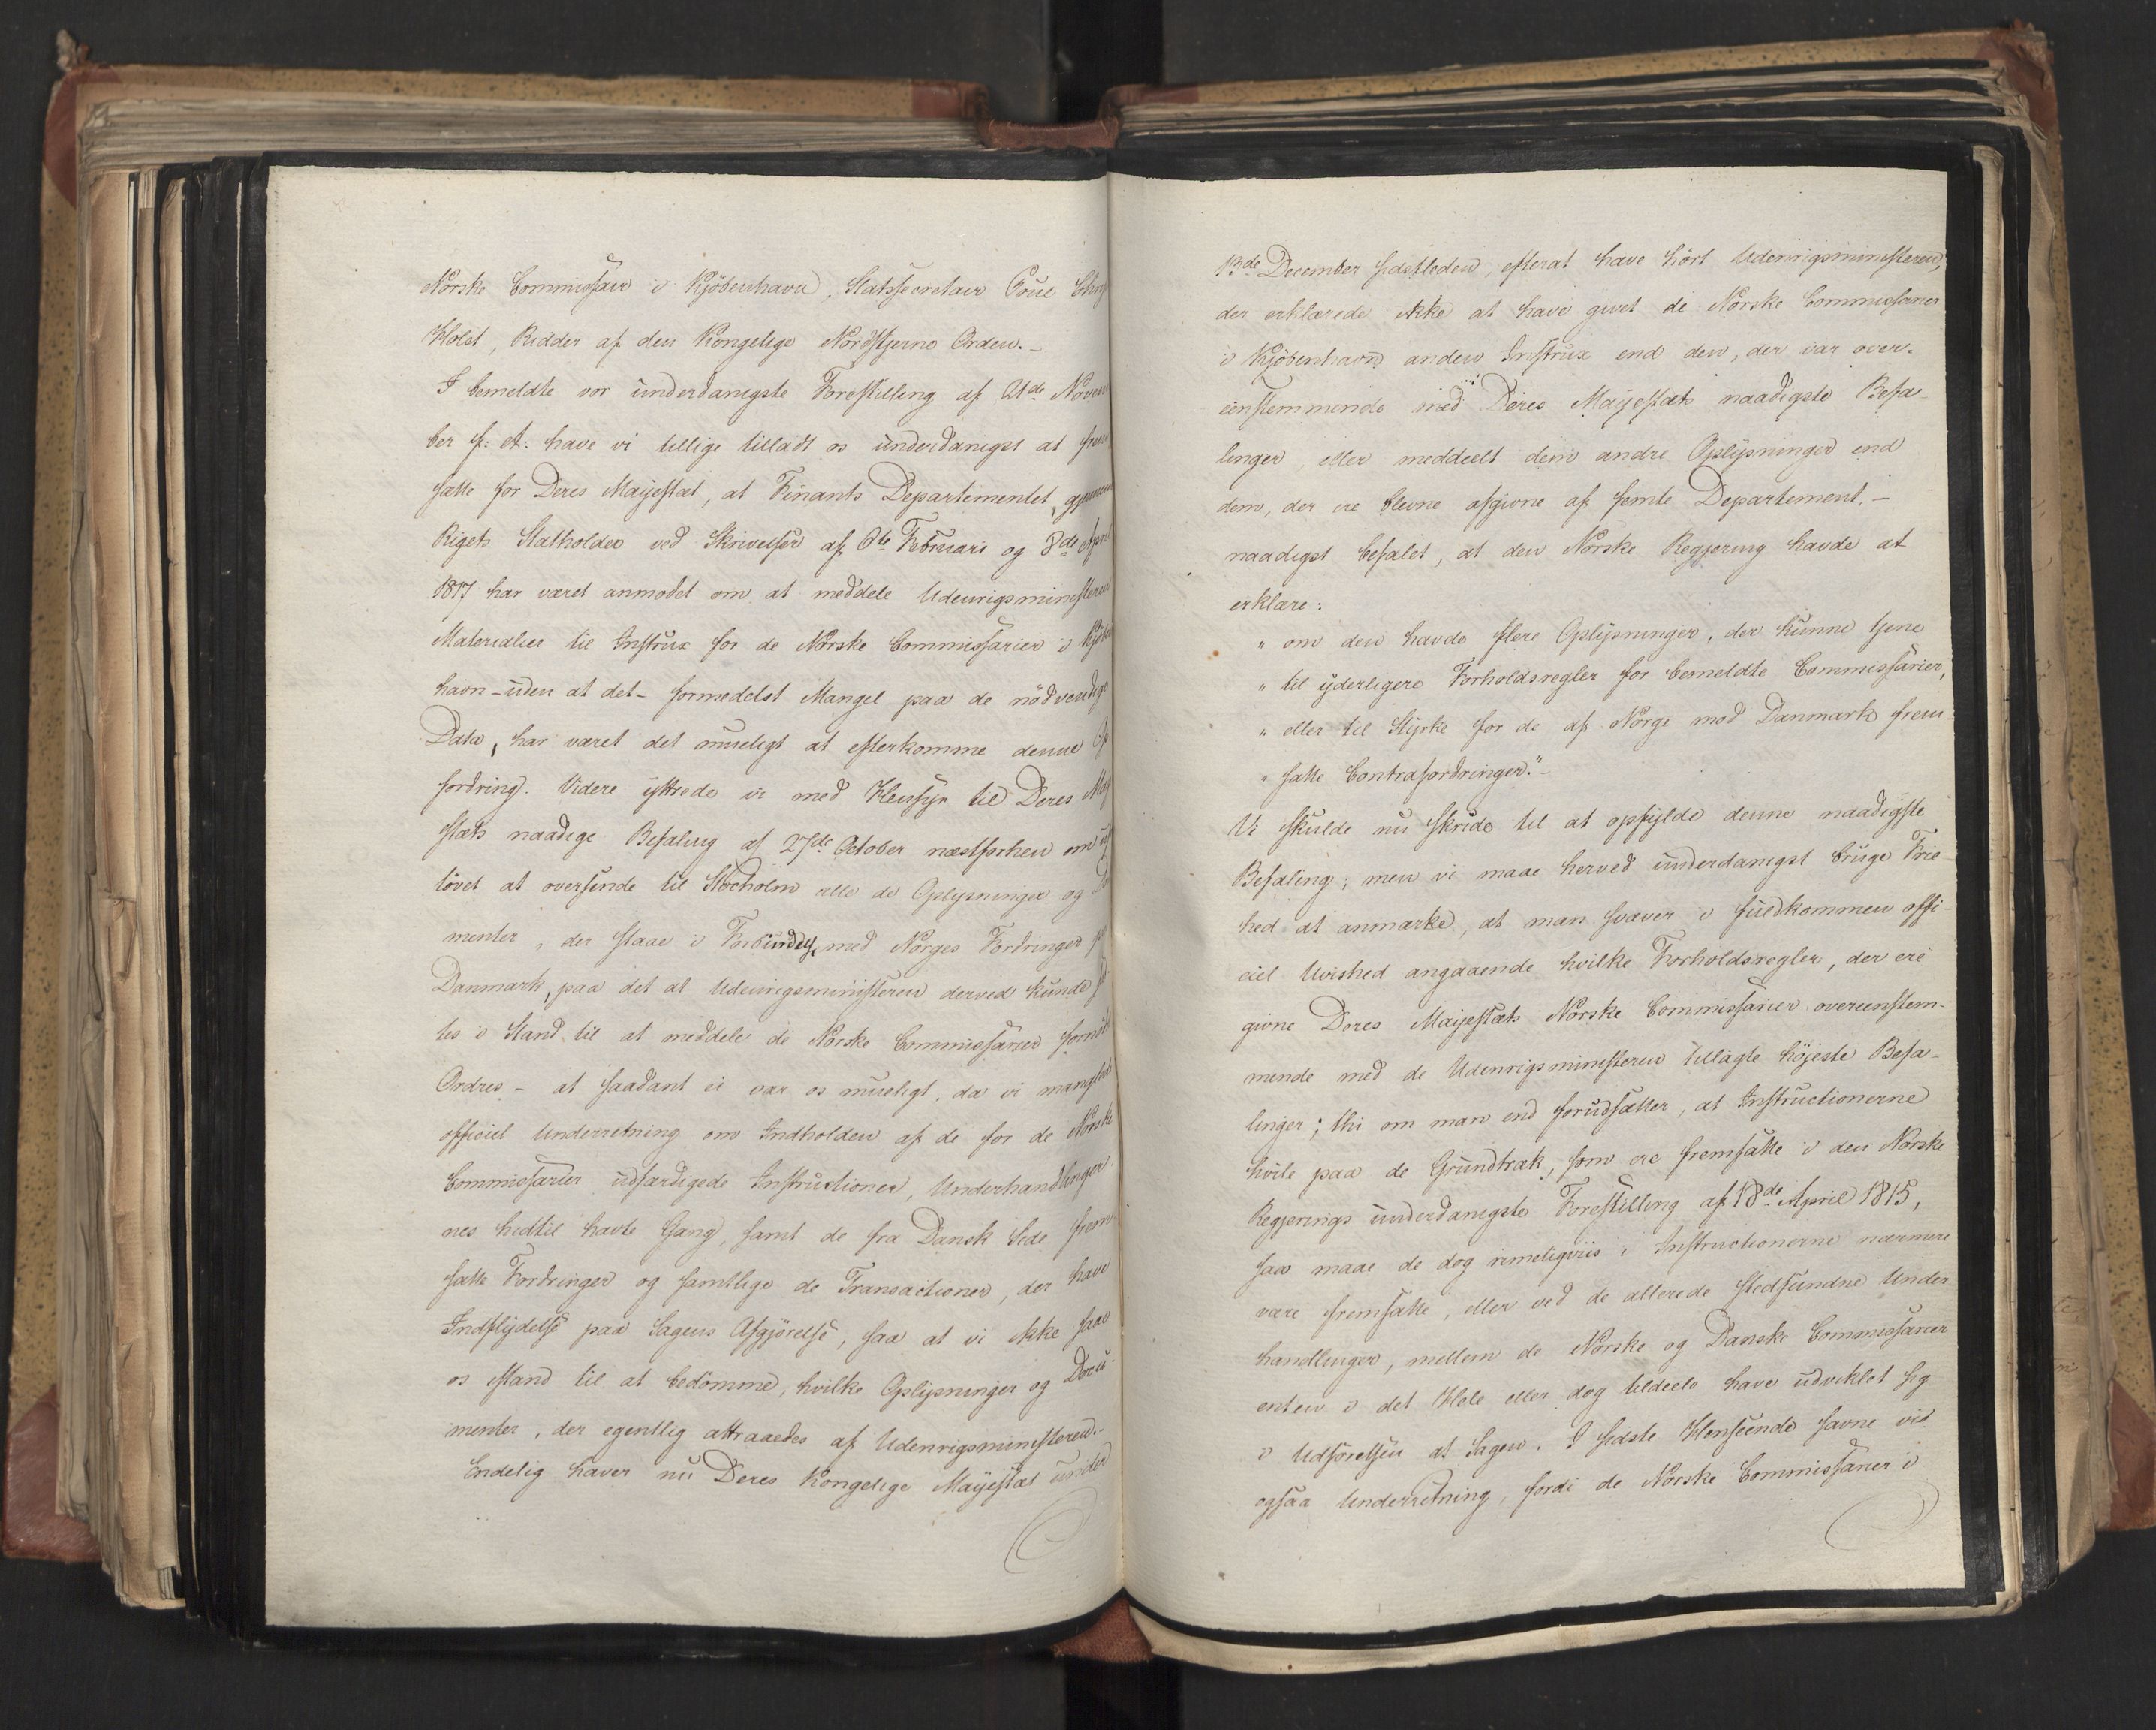 Norske Commissair i Kjöbenhavn, Statssecretair Poul
Holst, Ridder af den Kongelige Nordstjerne Orden._
I bemeldte vor underdanigste Forestilling af 21de Novem
ber f: A: have vi tillige tilladt os underdanigst at frem
satte for Deres Majestæt, at Finants Departementet, gjennem
Rigets Statholder ved Skrivelser af 6te Februari og 8de April
1817 har været anmodet om at meddele Udenrigsministeren
Materialier til Instrux for de Norske Commissarier i Kjöben
havn - uden at det - formedelst Mangel paa de nödvendige
Data, har været det mueligt at efterkomme denne Op
fordring. Videre yttrede vi med Hensyn til Deres Maj
stæts naadige Befaling af 27de October næstforhen om
tövet at oversende til Stocholm alle de Oplysninger og Do
menter, der staae i Forbindelse med Norges Fordringer
Danmark, paa det at Udenrigsministeren derved kunde
tes i Stand til at meddele de Norske Commissarier fornödne
Ordres - at saadant ei var os mueligt, da vi manglede
officiel Underretning om Indholden af de for de Norske
Commissarier udfærdigede Instructioner, Underhandlinger
nes hidtil havte Gang, samt de fra Dansk Side frem
satte Fordringer og samtlige de Transactioner, der have
Indflydelse paa Sagens Afgjörelse, saa at vi ikke saae
os istand til at bedömme, hvilke Oplysninger og Docu
menter, der egentlig attraaedes af Udenrigsministeren._
Endelig haver nu Deres Kongelige Majestæt under
13de December sidstleden, efterat have hört Udenrigsministeren,
der erklærede ikke at have givet de Norske Commissarier
i Kjöbenhavn anden Instrux end den, der var over-
eenstemmende med Deres Majestæts naadigste Befa-
linger, eller meddeelt dem andre Oplysninger end
dem, der ere blevne afgivne af femte Departement. _
naadigst befalet, at den Norske Regjering havde at
erklære:
" om den havde flere Oplysninger, der kunne tjene
" til yderligere Forholdsregler for bemeldte Commissarier,
" eller til Styrke for de af Norge mod Danmark frem-
" satte Contrafordringer."_
Vi skulde nu skride til at opfylde denne naadigste
Befaling; men vi maae herved underdanigst bruge Frie-
hed at anmærke, at man svæver i fuldkommen offi-
ciel Uvished angaaende hvilke Forholdsregler, der ere
givne Deres Majestæts Norske Commissarier overeenstem-
mende med de Udenrigsministeren tillagte höjeste Befa-
linger; thi om man end forudsætter, at Instructionerne
hvile paa de Grundtræk, som ere fremsatte i den Norske
Regjerings underdanigste Forestilling af 18de April 1815,
saa maae de dog rimeligviis i Instructionerne nærmere
være fremsatte, eller ved de allerede stedfundne Under
handlinger, mellem de Norske og Danske Commissarier
enten i det Hele eller dog tildeels have udviklet sig
i Udförelsen af Sagen. I sidste Henseende savne vi
ogsaa Underretning, fordi de Norske Commissarier i